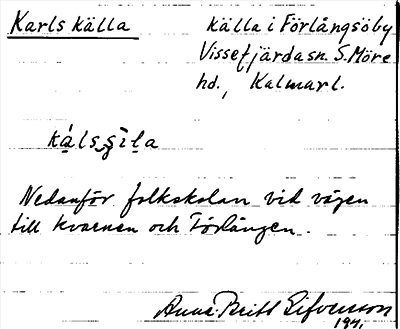 Karls källa
källa i Förlångsöby
Vissefjärda sn. S. Möre
hd., Kalmar l.
Nedanför folkskolan vid vägen
till kvarnen och Förlången.
Anna-Britt